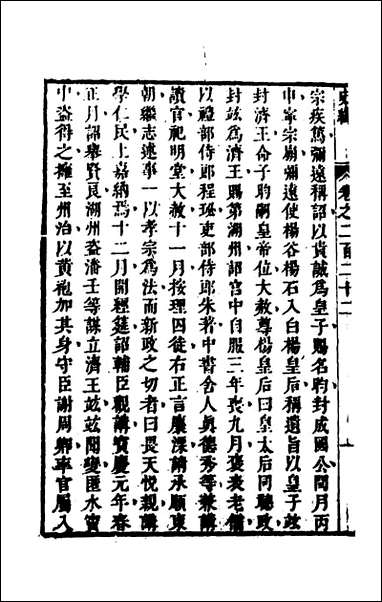 史緯 卷之二百二十二
宗疾篤彌遠稱詔以貴誠爲皇子賜名昀封成國公閏月丙
申寧宗崩彌遠使楊谷楊石入白楊皇后稱遺旨以皇子竑
封濟王命子昀嗣皇帝位大赦尊楊皇后曰皇太后同聽政
封竑爲濟王賜第湖州詔宮中自服三年喪九月褒表老儒
以禮部侍郎程珌吏部侍郎朱著中書舍人眞德秀等兼講
讀官祀明堂大赦十一月按理囚徒右正言麋溧請承順東
朝繼志述事一以孝宗爲法而新政之切者曰畏天悅親講
學仁民上嘉納焉十二月開經筵詔輔臣觀講寶慶元年春
正月詔舉賢良湖州盜潘壬等謀立濟王竑竑聞變匿水竇
中盜得之擁至州治以黃袍加其身守臣謝周卿率官屬入